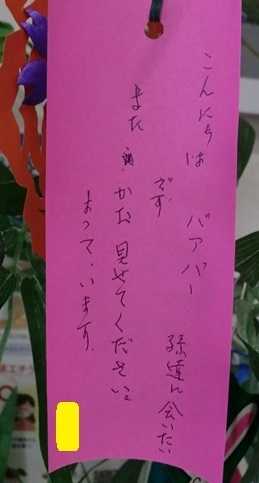 こんにちは バアバー. 孫達に会いたい
です
また かお見せてください。
まって、います。